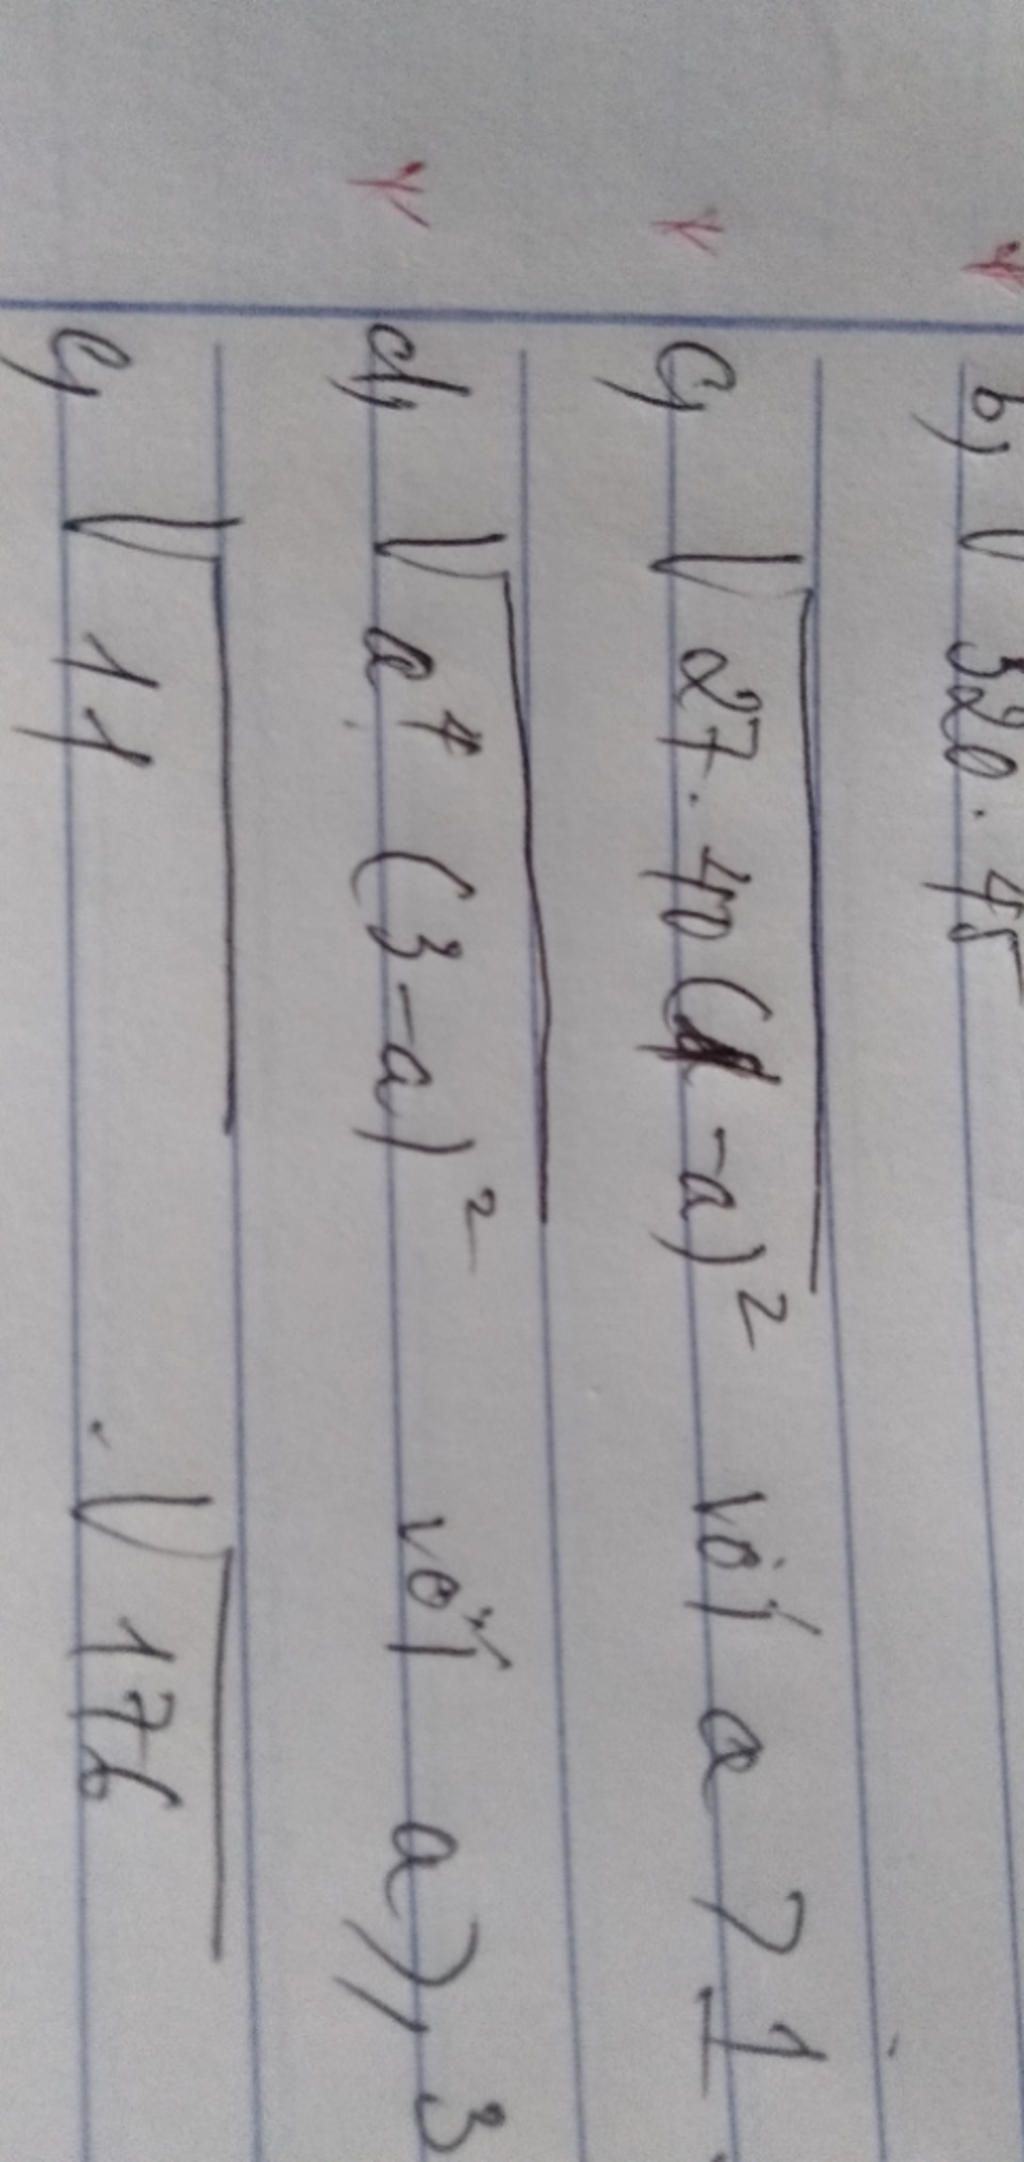 b, √320.45
c, √27.40(1-a)² với a > 1
d, √a⁴(3-a)² với a ⩾ 3
e, √11 . √176